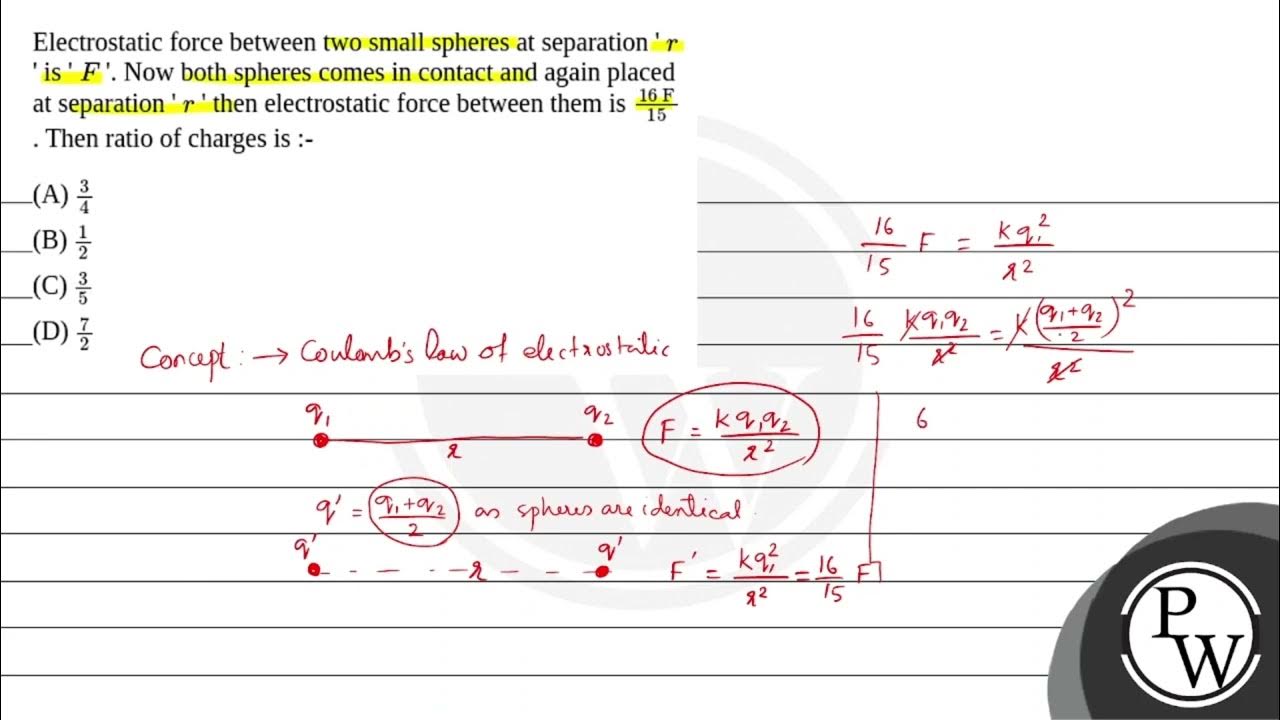 Electrostatic force between two small spheres at separation ' r
' is ' F '. Now both spheres comes in contact and again placed
at separation ' r ' then electrostatic force between them is 16 F/15
. Then ratio of charges is :-
(A) 3/4
(B) 1/2
(C) 3/5
(D) 7/2
Concept: → Coulomb's law of electrostatic
q₁ q₂ r
F = kq₁q₂/r²
q' = (q₁+q₂)/2 as spheres are identical.
q' q' r
F' = kq'²/r² = 16/15 F
16/15 F = kq'²/r²
16/15 kq₁q₂/r² = k((q₁+q₂)/2)²/r²
6
PW